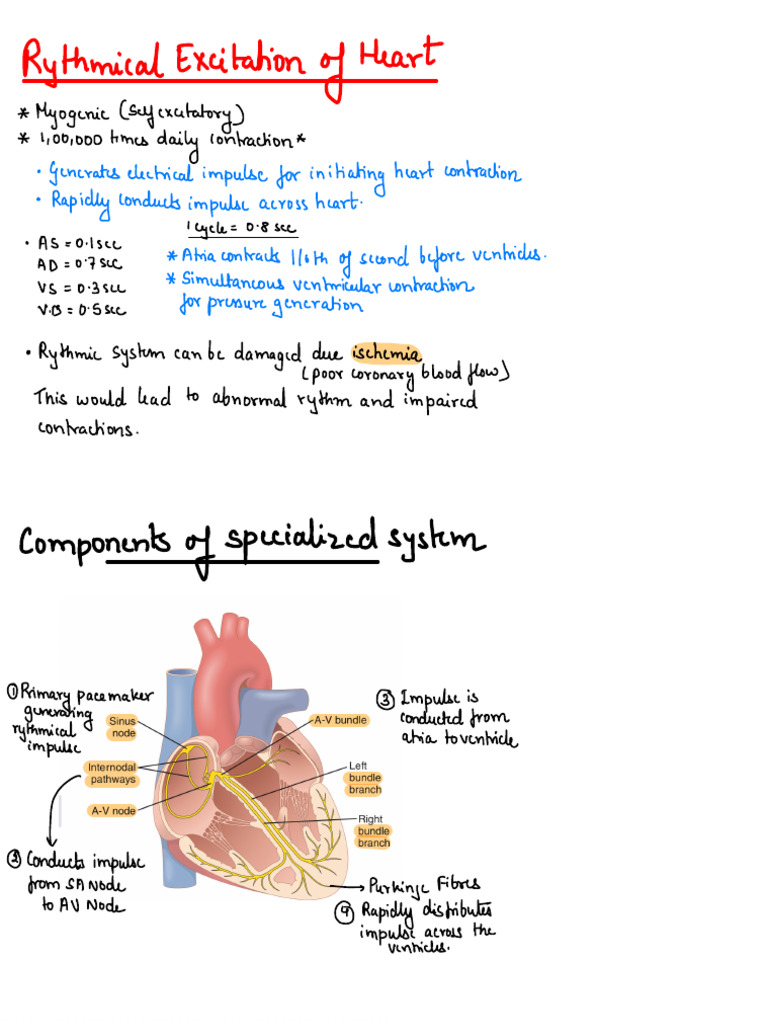 Rythmical Excitation of Heart
* Myogenic (self excitatory)
* 1,00,000 times daily contraction *
• Generates electrical impulse for initiating heart contraction
• Rapidly conducts impulse across heart.
1 cycle = 0.8 sec
• AS = 0.1 sec
AD = 0.7 sec
VS = 0.3 sec
V.D = 0.5 sec
* Atria contracts 1/6th of second before ventricles.
* Simultaneous ventricular contraction
for pressure generation
• Rythmic system can be damaged due ischemia
(poor coronary blood flow)
This would lead to abnormal rythm and impaired
contractions.
Components of specialized system
① Primary pacemaker
generating
rythmical
impulse
Sinus
node
Internodal
pathways
A-V node
A-V bundle
Left
bundle
branch
Right
bundle
branch
③ Impulse is
conducted from
atria to ventricle
③ Conducts impulse
from SA Node
to AV Node
Purkinje Fibres
④ Rapidly distributes
impulse across the
ventricles.